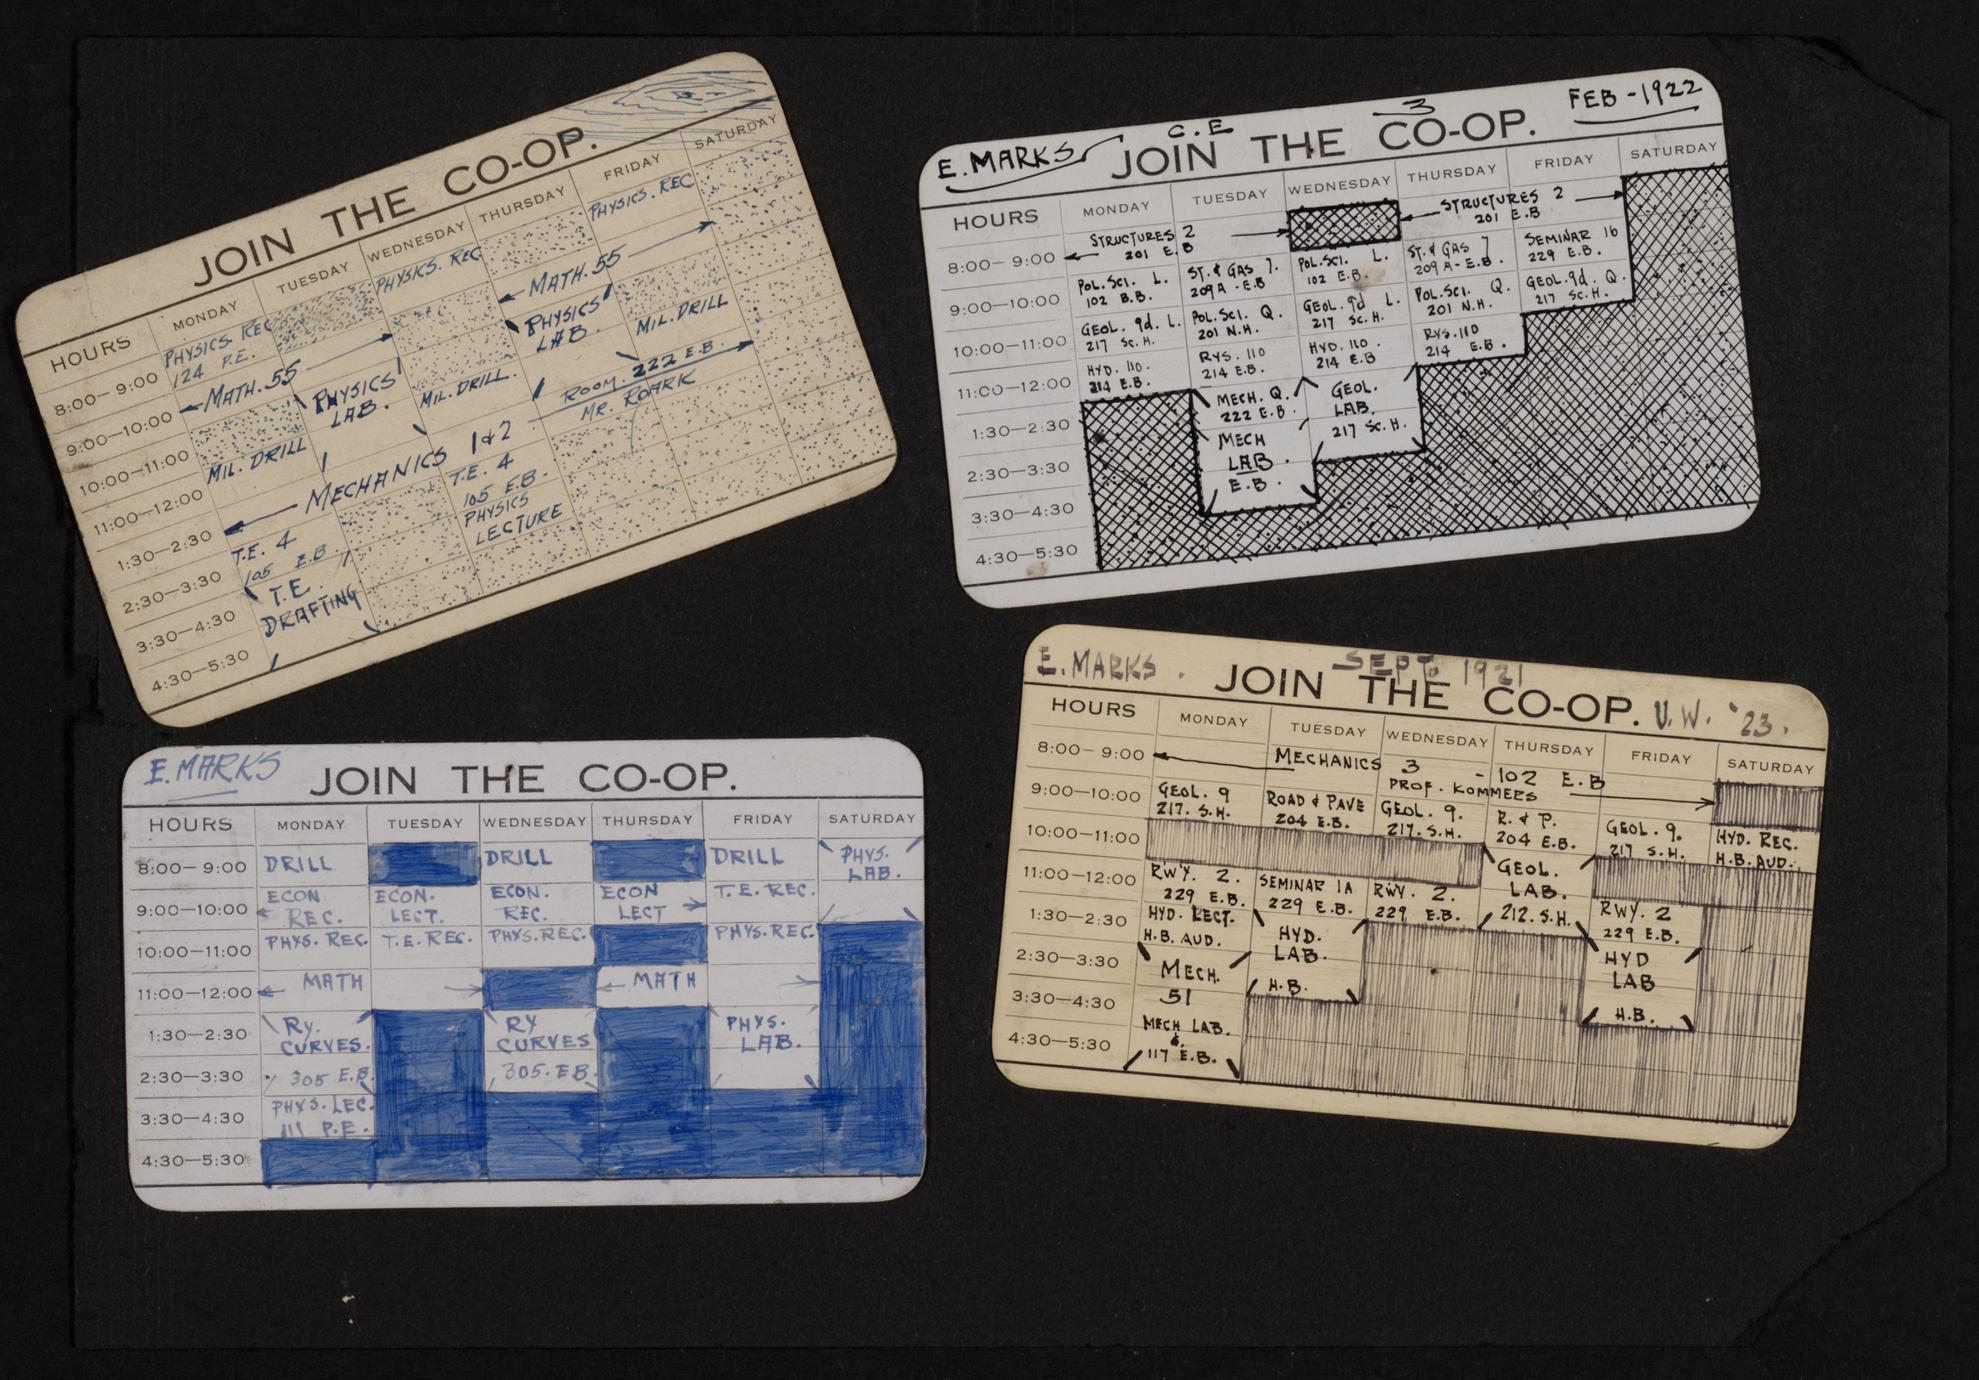 JOIN THE CO-OP.
HOURS MONDAY TUESDAY WEDNESDAY THURSDAY FRIDAY SATURDAY
8:00-9:00
PHYSICS. REC
124 P.E.
PHYSICS. REC
PHYSICS. REC
9:00-10:00
← MATH. 55 →
← MATH. 55 →
10:00-11:00
PHYSICS
LAB.
PHYSICS
LAB.
11:00-12:00
MIL. DRILL
MIL. DRILL.
MIL. DRILL
1:30-2:30
← MECHANICS 1 & 2
ROOM 222 E.B. →
MR. ROARK
2:30-3:30
T.E. 4
105 E.B.
T.E. 4
105 E.B.
3:30-4:30
T.E.
DRAFTING
PHYSICS
LECTURE
4:30-5:30
E. MARKS C.E 3 FEB - 1922
JOIN THE CO-OP.
HOURS MONDAY TUESDAY WEDNESDAY THURSDAY FRIDAY SATURDAY
8:00-9:00
← STRUCTURES 2 →
201 E.B
← STRUCTURES 2 →
201 E.B
9:00-10:00
POL. SCI. L.
102 B.B.
ST. & GAS 7.
209A - E.B
POL. SCI. L.
102 E.B.
ST. & GAS 7
209 A - E.B.
SEMINAR 16
229 E.B.
10:00-11:00
GEOL. 9d. L.
217 Sc. H.
POL. SCI. Q.
201 N.H.
GEOL. 9d L.
217 Sc. H.
POL. SCI. Q.
201 N.H.
GEOL. 9d. Q.
217 Sc. H.
11:00-12:00
HYD. 110.
214 E.B.
RYS. 110
214 E.B.
HYD. 110.
214 E.B
RYS. 110
214 E.B.
1:30-2:30
MECH. Q.
222 E.B.
GEOL.
LAB.
217 Sc. H.
2:30-3:30
MECH
LAB.
E.B.
3:30-4:30
4:30-5:30
E. MARKS
JOIN THE CO-OP.
HOURS MONDAY TUESDAY WEDNESDAY THURSDAY FRIDAY SATURDAY
8:00-9:00
DRILL
DRILL
DRILL
PHYS.
LAB.
9:00-10:00
ECON
← REC.
ECON.
LECT.
ECON.
REC.
ECON
LECT →
T.E. REC.
10:00-11:00
PHYS. REC.
T.E. REC.
PHYS. REC.
PHYS. REC.
11:00-12:00
← MATH →
← MATH →
1:30-2:30
RY.
CURVES.
RY
CURVES
PHYS.
LAB.
2:30-3:30
305 E.B.
305. E.B.
3:30-4:30
PHYS. LEC.
111 P.E.
4:30-5:30
E. MARKS. SEPT. 1921
JOIN THE CO-OP. U.W. '23.
HOURS MONDAY TUESDAY WEDNESDAY THURSDAY FRIDAY SATURDAY
8:00-9:00
← MECHANICS 3 - 102 E.B →
PROF. KOMMERS
9:00-10:00
GEOL. 9
217. S.H.
ROAD & PAVE
204 E.B.
GEOL. 9.
217. S.H.
R. & P.
204 E.B.
GEOL. 9.
217 S.H.
HYD. REC.
H.B. AUD.
10:00-11:00
GEOL.
LAB.
212. S.H.
11:00-12:00
RWY. 2.
229 E.B.
SEMINAR 1A
229 E.B.
RWY. 2.
229 E.B.
RWY. 2
229 E.B.
1:30-2:30
HYD. LECT.
H.B. AUD.
HYD.
LAB.
H.B.
HYD
LAB
H.B.
2:30-3:30
MECH.
51
3:30-4:30
MECH LAB.
&
117 E.B.
4:30-5:30